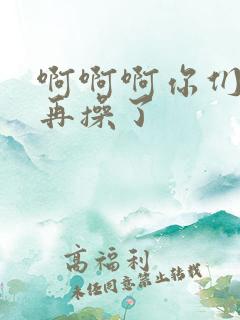 啊啊啊你们
再操了
高福利
未经同意禁止转载